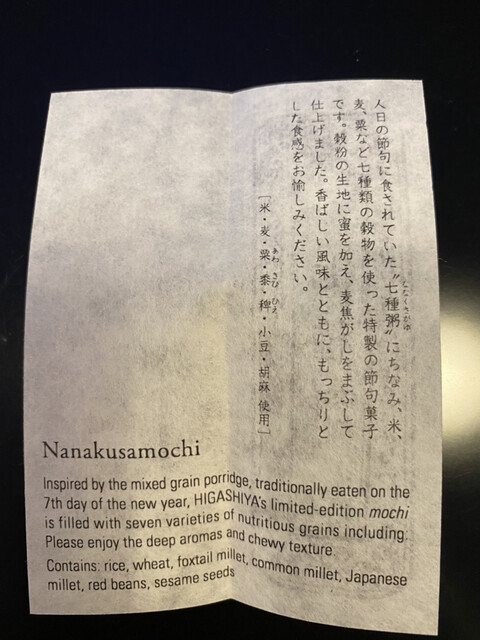 人日の節句に食されていた〝七種粥〟にちなみ、米、
麦、粟など七種類の穀物を使った特製の節句菓子
です。穀粉の生地に蜜を加え、麦焦がしをまぶして
仕上げました。香ばしい風味とともに、もっちりと
した食感をお愉しみください。
[米・麦・粟・黍・稗・小豆・胡麻 使用]
Nanakusamochi
Inspired by the mixed grain porridge, traditionally eaten on the
7th day of the new year, HIGASHIYA's limited-edition mochi
is filled with seven varieties of nutritious grains including:
Please enjoy the deep aromas and chewy texture.
Contains: rice, wheat, foxtail millet, common millet, Japanese
millet, red beans, sesame seeds